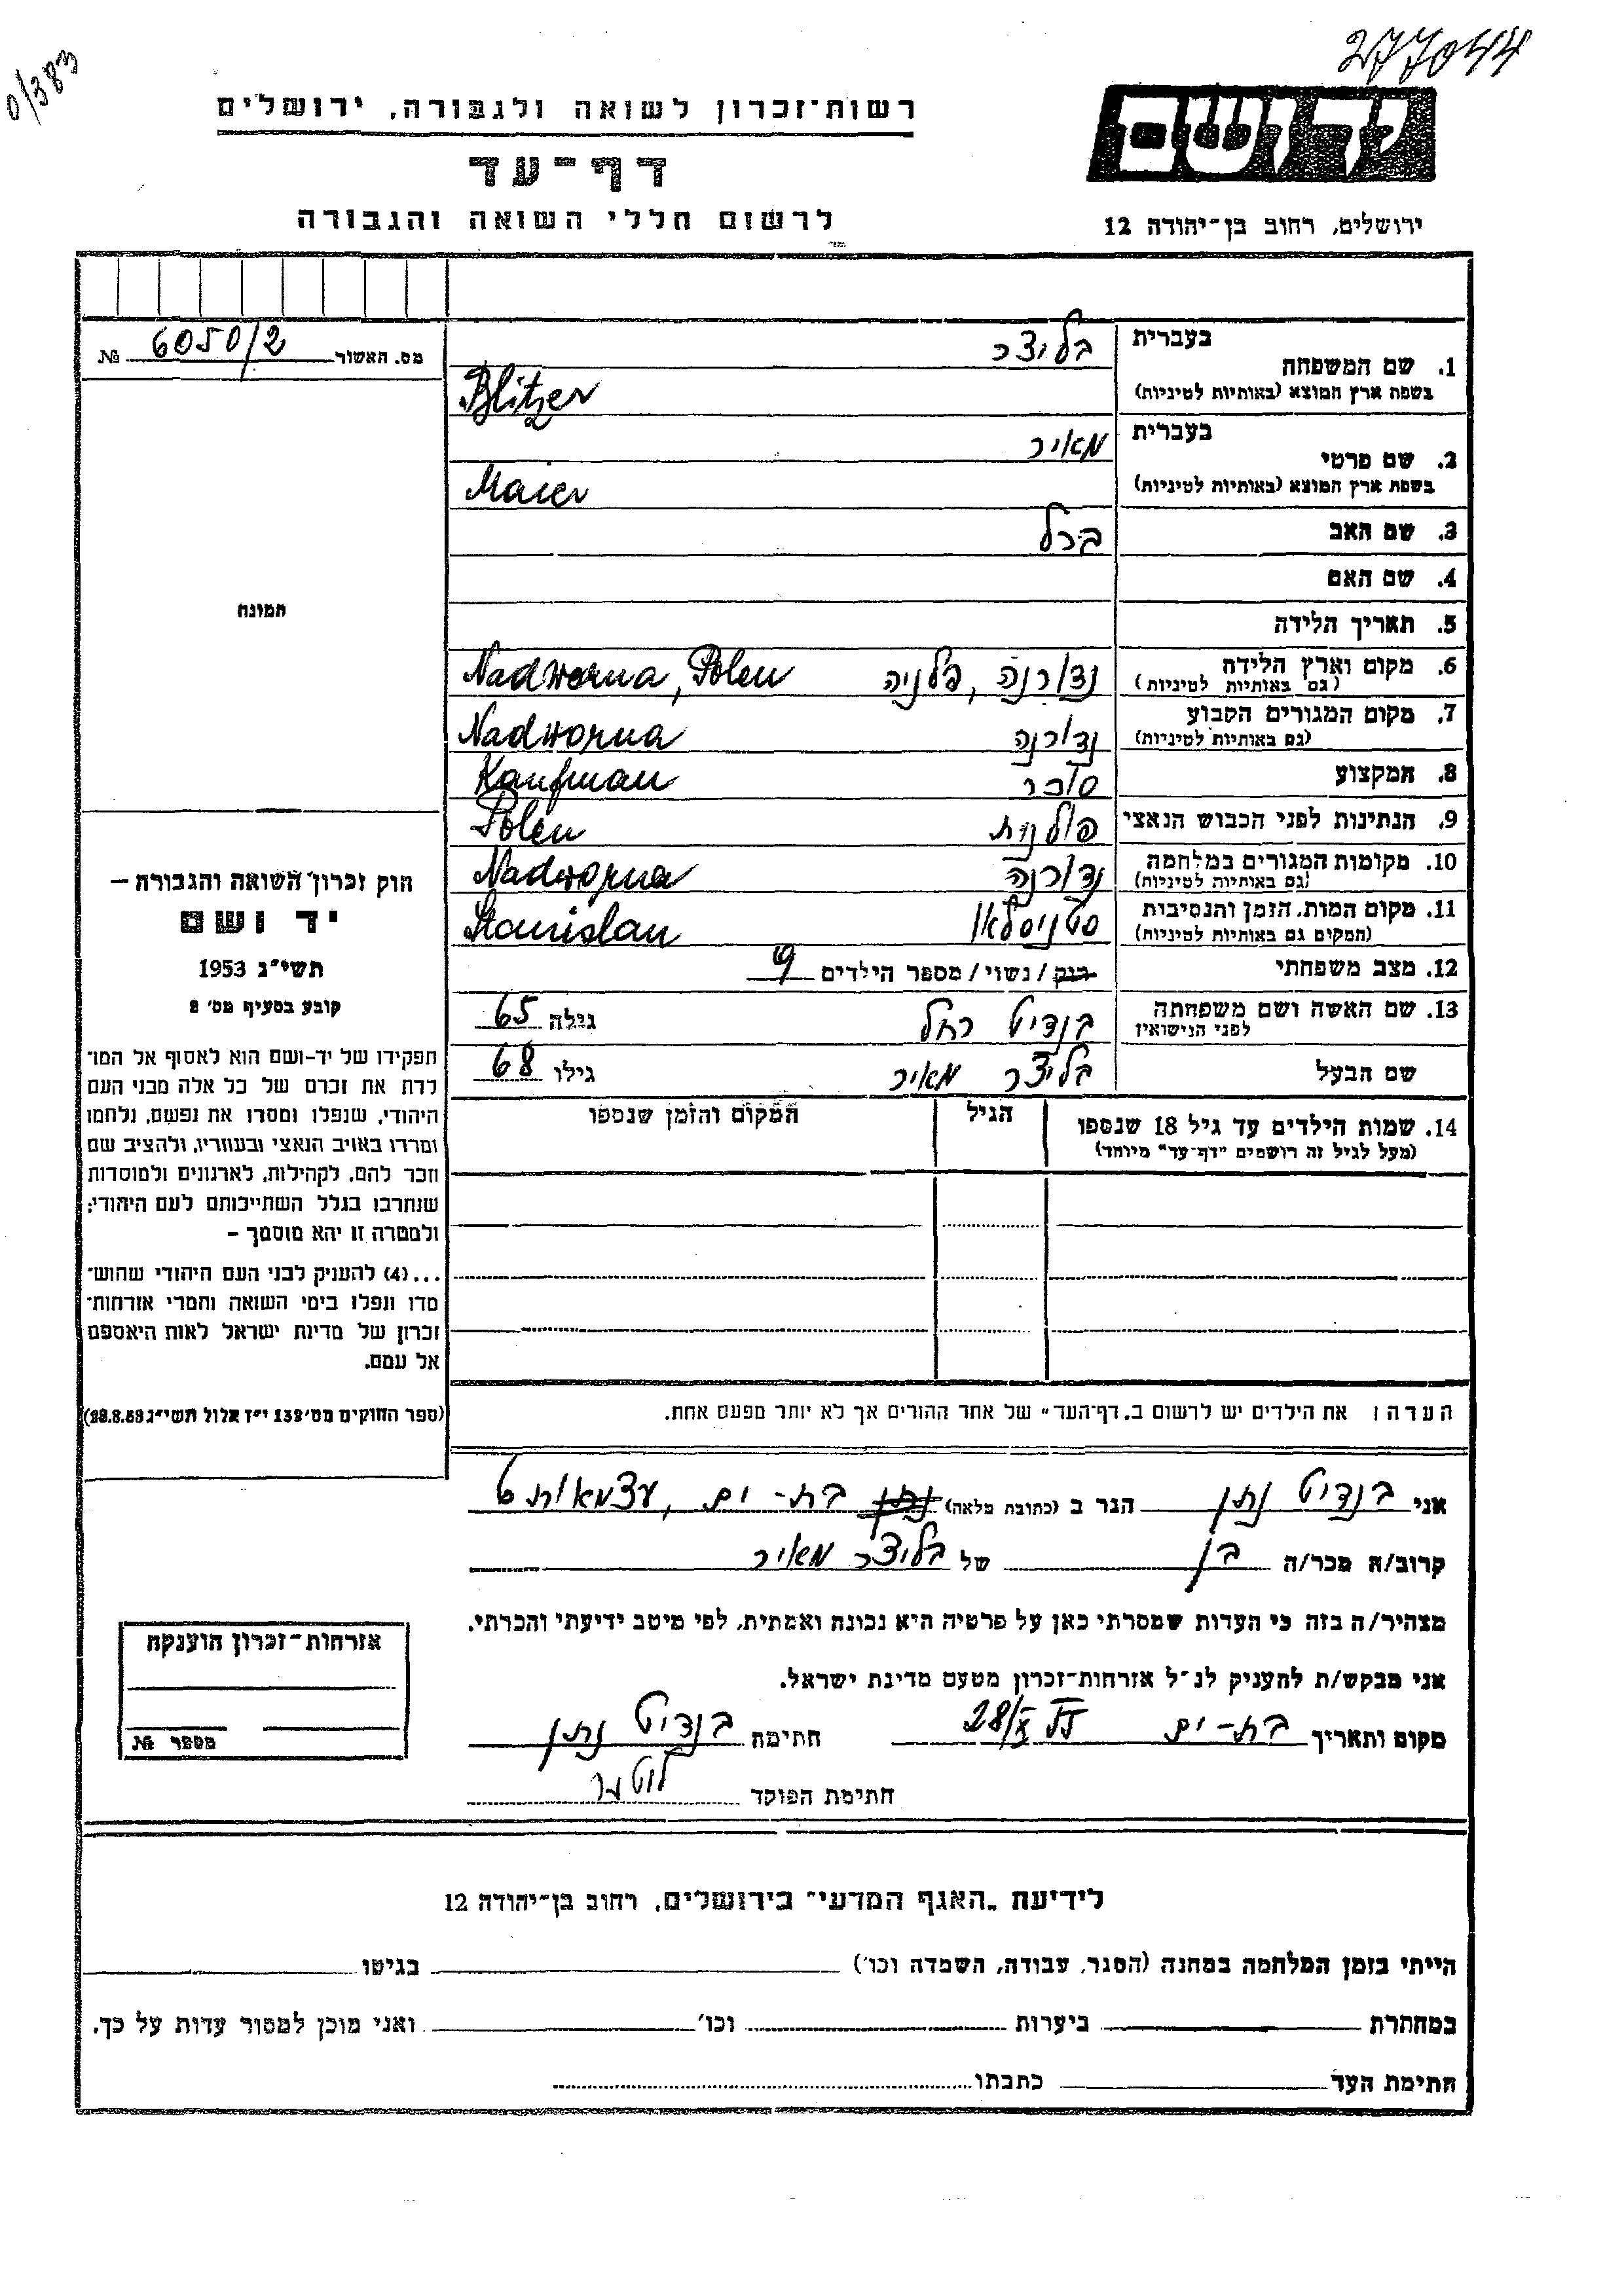 277044
0/383
רשות־זכרון לשואה ולגבורה, ירושלים
דף־עד
לרשום חללי השואה והגבורה
יד ושם
ירושלים, רחוב בן־יהודה 12
מס. האשור 6050/2 №
תמונה
חוק זכרון השואה והגבורה —
יד ושם
תשי״ג 1953
קובע בסעיף מס׳ 2
תפקידו של יד-ושם הוא לאסוף אל המו־
לדת את זכרם של כל אלה מבני העם
היהודי, שנפלו ומסרו את נפשם, נלחמו
ומרדו באויב הנאצי ובעוזריו, ולהציב שם
וזכר להם, לקהילות, לארגונים ולמוסדות
שנחרבו בגלל השתייכותם לעם היהודי;
ולמטרה זו יהא מוסמך —
...(4) להעניק לבני העם היהודי שהוש־
מדו ונפלו בימי השואה והמרי אזרחות־
זכרון של מדינת ישראל לאות היאספם
אל עמם.
(ספר החוקים מס׳ 132 י״ז אלול תשי״ג 28.8.53)
1. שם המשפחה
בעברית בליצר
בשפת ארץ המוצא (באותיות לטיניות) Blitzer
2. שם פרטי
בעברית מאיר
בשפת ארץ המוצא (באותיות לטיניות) Maier
3. שם האב ברל
4. שם האם
5. תאריך הלידה
6. מקום וארץ הלידה נדורנה, פלניה Nadworna, Polen
(גם באותיות לטיניות)
7. מקום המגורים הקבוע נדורנה Nadworna
(גם באותיות לטיניות)
8. המקצוע סוחר Kaufman
9. הנתינות לפני הכבוש הנאצי פולנית Polen
10. מקומות המגורים במלחמה נדורנה Nadworna
(גם באותיות לטיניות)
11. מקום המות, הזמן והנסיבות סטניסלאו Stanislau
(המקום גם באותיות לטיניות)
12. מצב משפחתי רוק / נשוי / מספר הילדים 9
13. שם האשה ושם משפחתה בנדיט רחל גילה 65
לפני הנישואין
שם הבעל בליצר מאיר גילו 68
14. שמות הילדים עד גיל 18 שנספו הגיל המקום והזמן שנספו
(מעל לגיל זה רושמים ״דף־עד״ מיוחד)
הערה: את הילדים יש לרשום ב„דף־העד״ של אחד ההורים אך לא יותר מפעם אחת.
אני בנדיט נתן הגר ב (כתובת מלאה) נתן בת-ים, עצמאות 6
קרוב/ה מכר/ה בן של בליצר מאיר
מצהיר/ה בזה כי העדות שמסרתי כאן על פרטיה היא נכונה ואמתית, לפי מיטב ידיעתי והכרתי.
אני מבקש/ת להעניק לנ״ל אזרחות־זכרון מטעם מדינת ישראל.
מקום ותאריך בת-ים 28/X חתימה בנדיט נתן
חתימת הפוקד
אזרחות־זכרון הוענקה
מספר №
לידיעת „האגף המדעי״ בירושלים, רחוב בן־יהודה 12
הייתי בזמן המלחמה במחנה (הסגר, עבודה, השמדה וכו׳) בגיטו
במחתרת ביערות וכו׳ ואני מוכן למסור עדות על כך.
חתימת העד כתבתו